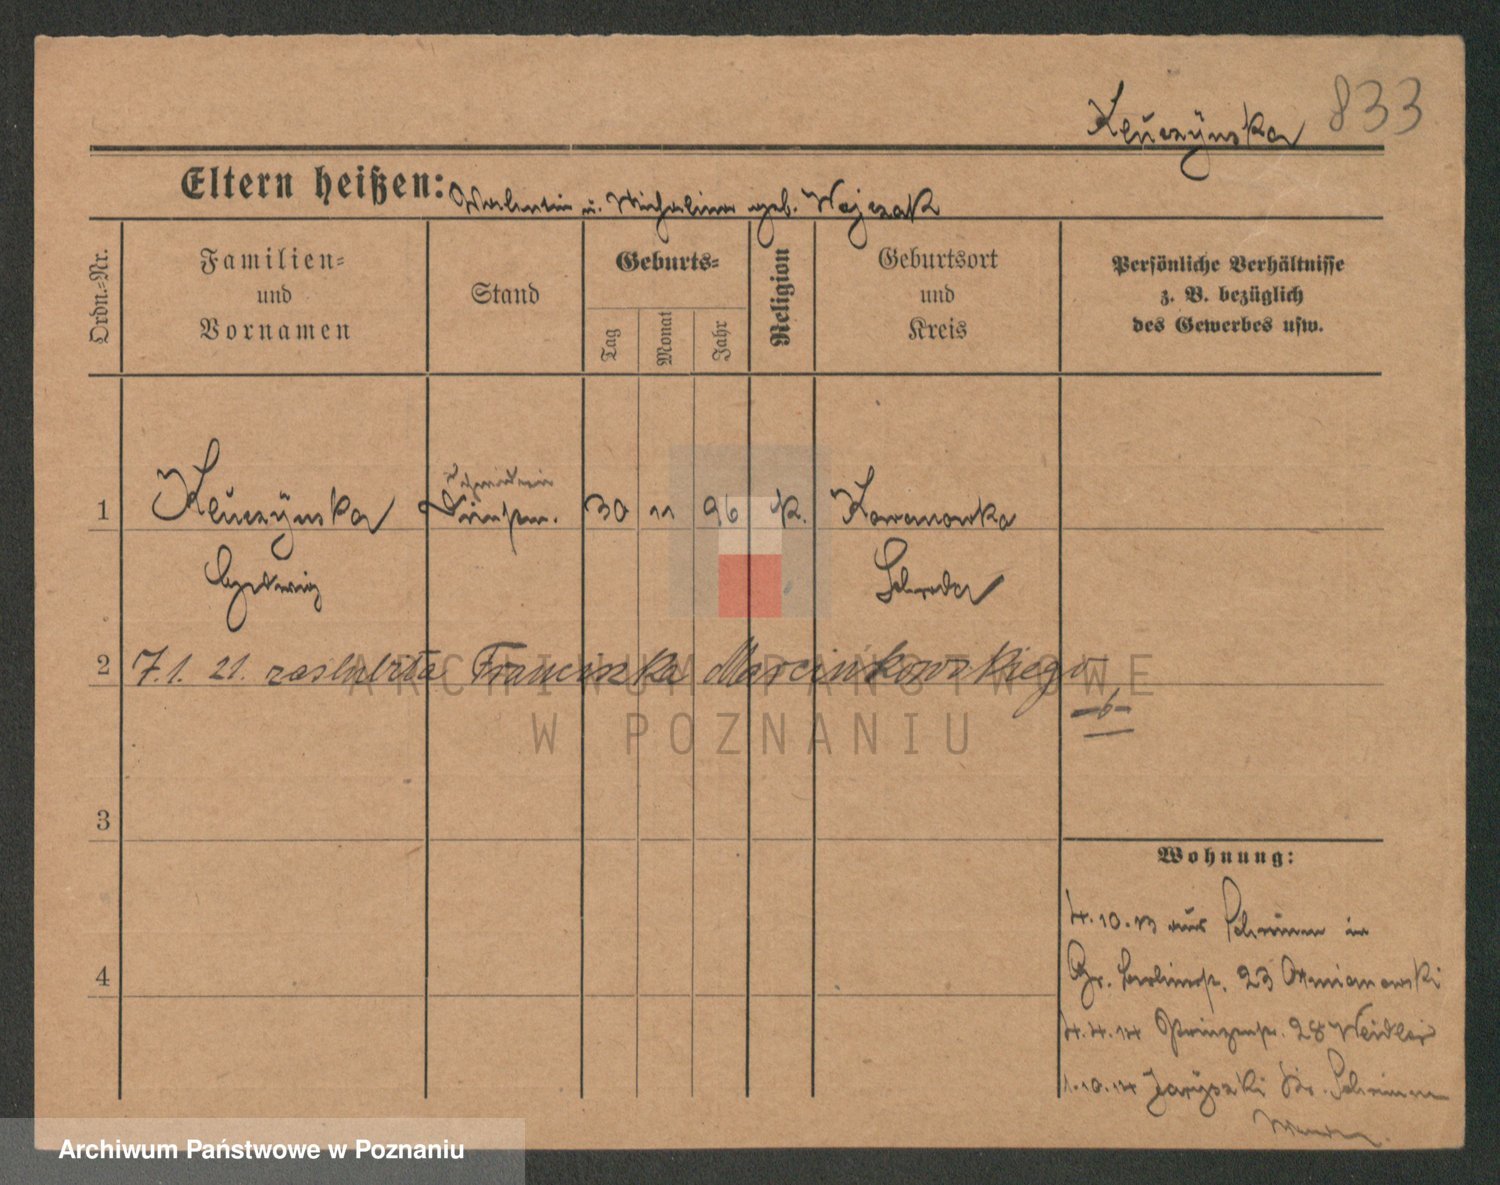 Kluczyńska 833
Eltern heißen: Valentin u. Michalina geb. Wojczak
Ordn.-Nr.
Familien-
und
Vornamen
Stand
Geburts-
Tag
Monat
Jahr
Religion
Geburtsort
und
Kreis
Persönliche Verhältnisse
z. B. bezüglich
des Gewerbes usw.
1 Kluczyńska 30 11 96 k.
Hedwig Schroda
2 7.1. 21. zaślubiła Franciszka Marcinkowskiego
3
4
Wohnung:
4.10.13 aus Schrimm in
Gr. Berlinerstr. 23
4.4.14 Prinzenstr. 28
1.10.14 Jaryszki Kr. Schrimm
ARCHIWUM PAŃSTWOWE
W POZNANIU
Archiwum Państwowe w Poznaniu